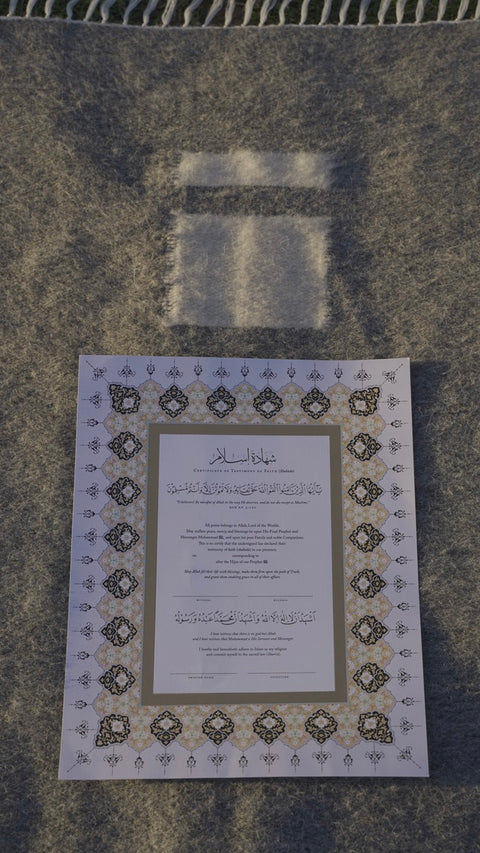 شهادة إسلام
CERTIFICATE OF TESTIMONY OF FAITH (Shahada)
يَا أَيُّهَا الَّذِينَ آمَنُوا اتَّقُوا اللَّهَ حَقَّ تُقَاتِهِ وَلَا تَمُوتُنَّ إِلَّا وَأَنتُم مُّسْلِمُونَ
"O believers! Be mindful of Allah in the way He deserves, and do not die except as Muslims."
QUR'AN 3:102
All praise belongs to Allah, Lord of the Worlds.
May endless peace, mercy and blessings be upon His Final Prophet and
Messenger Muhammad ﷺ, and upon his pure Family and noble Companions.
This is to certify that the undersigned has declared their
testimony of faith (shahada) in our presence,
on corresponding to
after the Hijra of our Prophet ﷺ
May Allah fill their life with blessings, make them firm upon the path of Truth,
and grant them enabling grace in all of their affairs.
WITNESS WITNESS
أَشْهَدُ أَنْ لَا إِلَهَ إِلَّا اللَّهُ وَأَشْهَدُ أَنَّ مُحَمَّدًا عَبْدُهُ وَرَسُولُهُ
I bear witness that there is no god but Allah
and I bear witness that Muhammad is His Servant and Messenger
I hereby and henceforth adhere to Islam as my religion
and commit myself to the sacred law (Sharia).
PRINTED NAME SIGNATURE